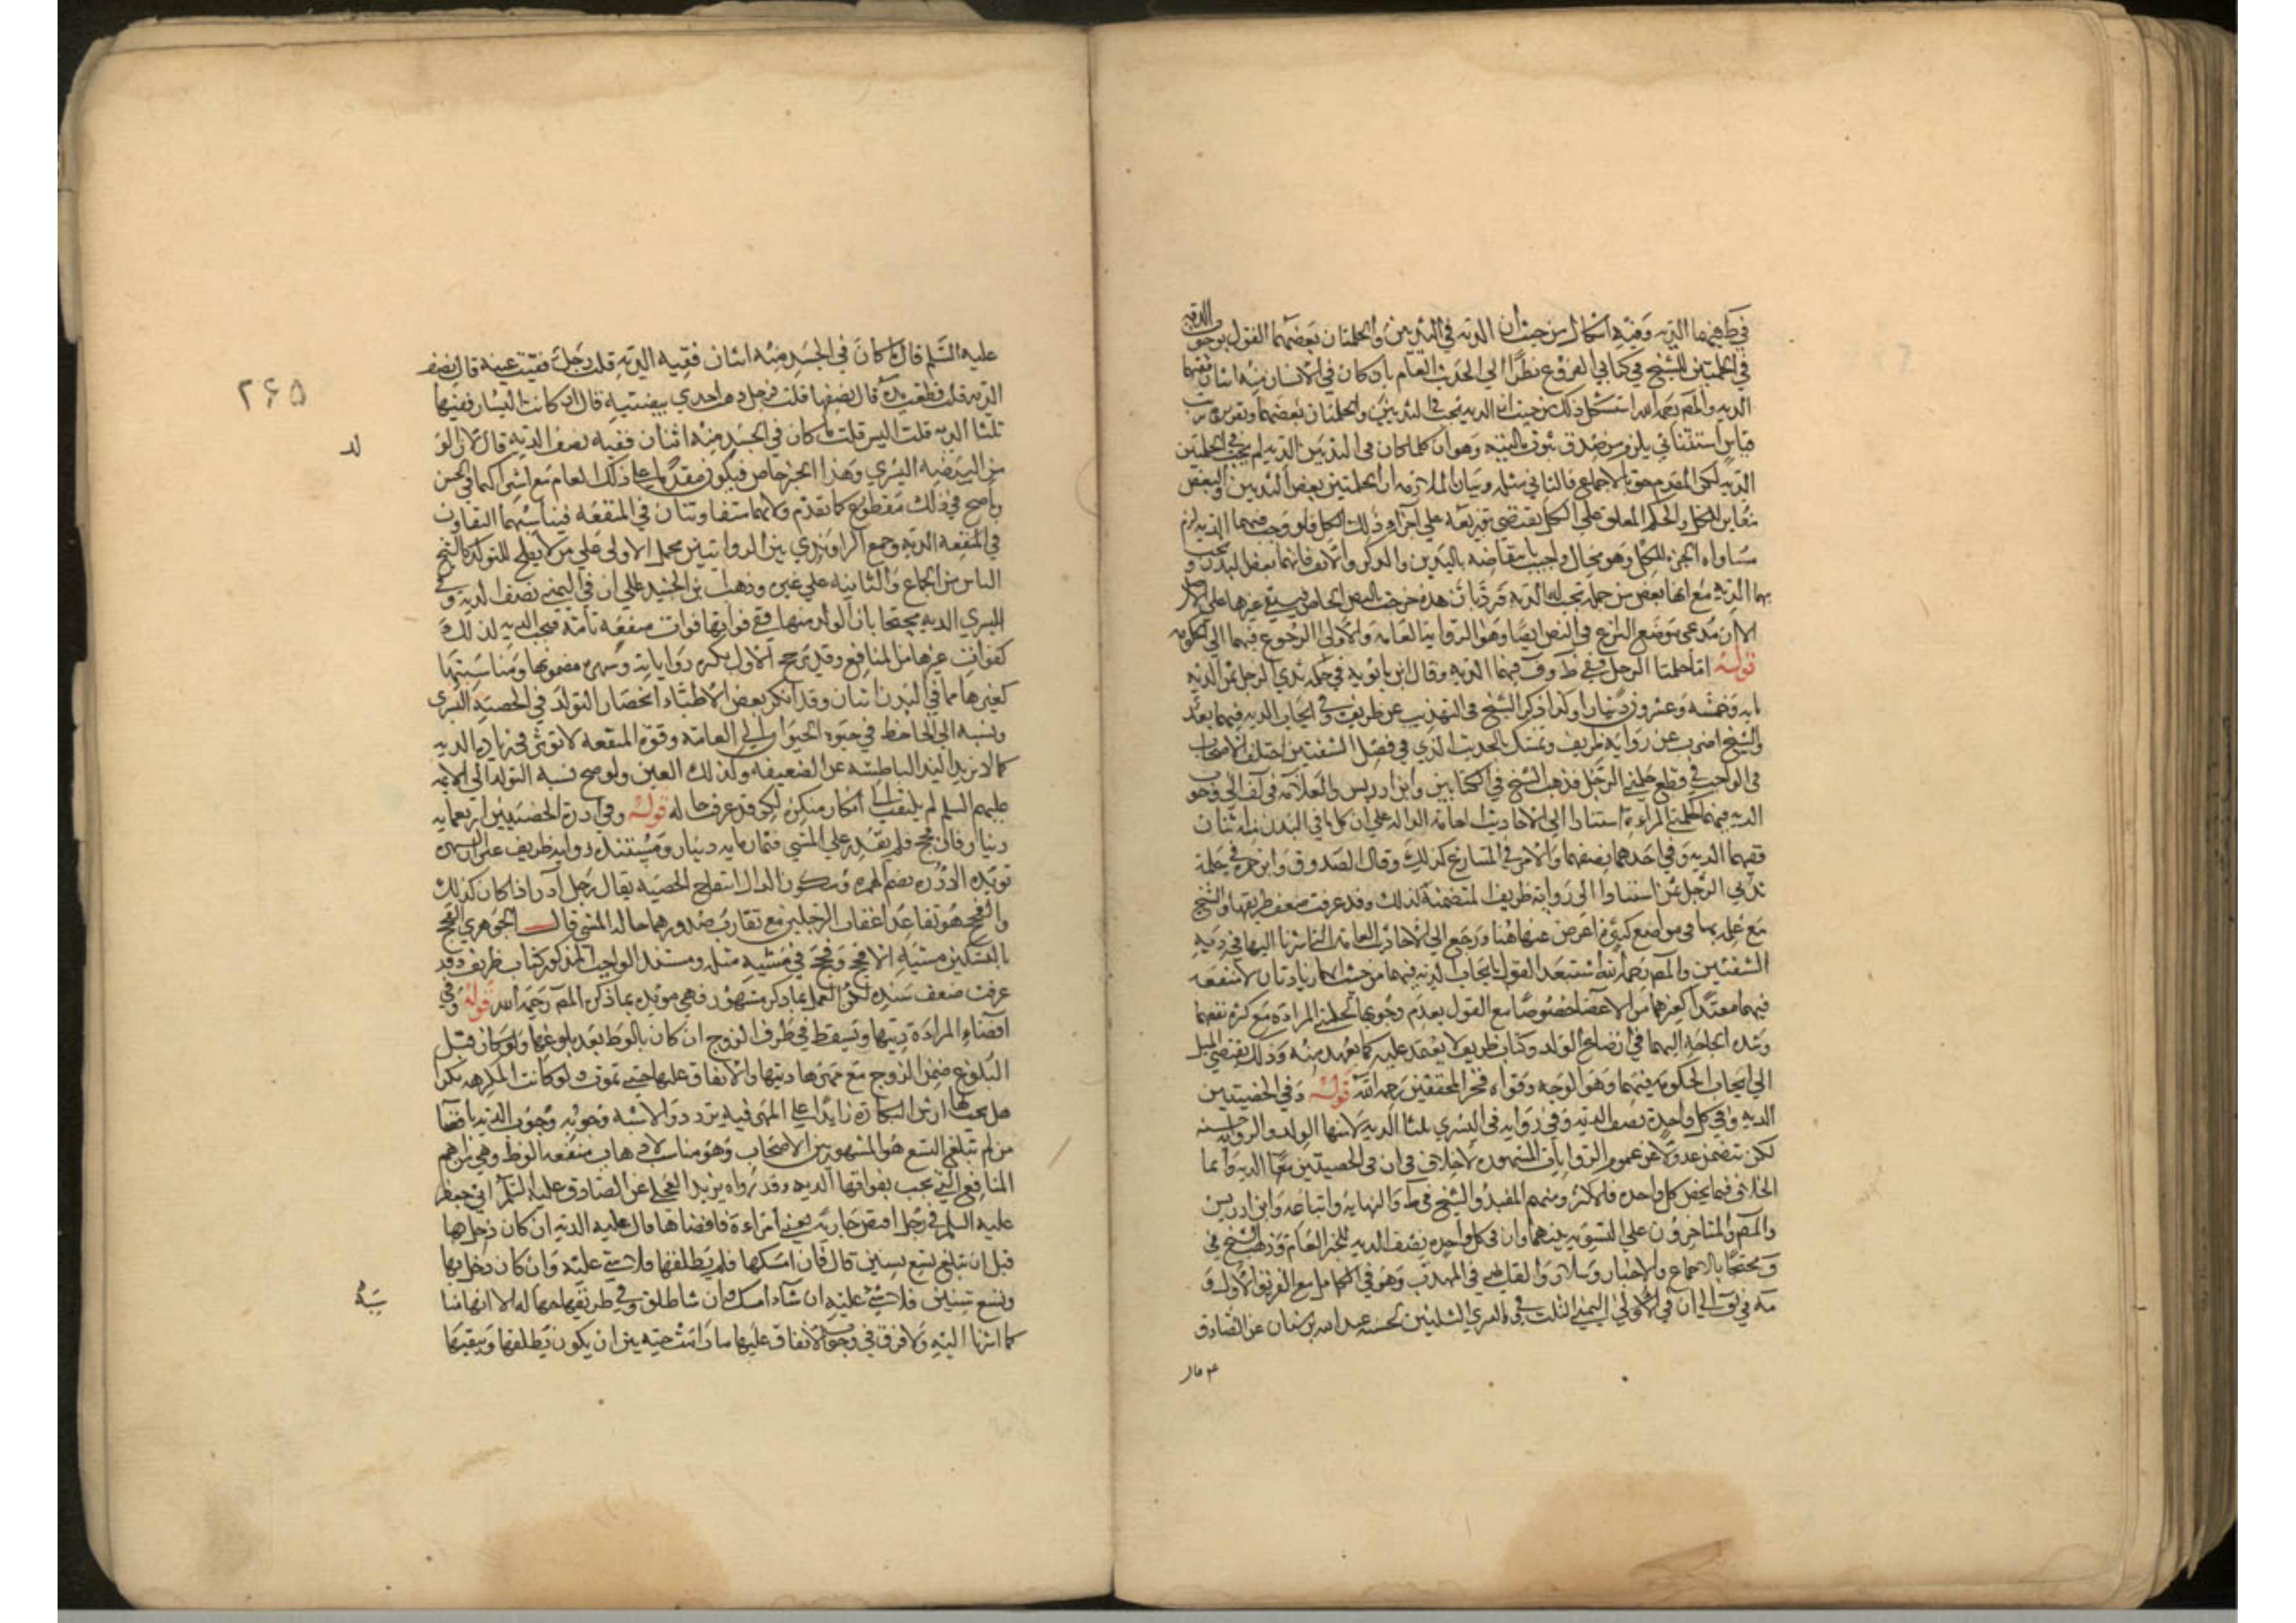 في ط فيهما الديه وفيه اشكال من حيث ان الديه في الثديين والحلمتان بعضهما القول بوجوب الديه
في الحلمتين للشيخ في كتابي الفروع نظرا الي الحديث العام بان كان في الانسان منه اثنان ففيهما
الديه والمص رحمه الله استشكل ذلك من حيث ان الديه تجب في الثديين والحلمتان بعضهما وتقريره من
قياس استثنائي يلزم من صدق وهو ان كلما كان في الثديين الديه لم تجب في الحلمتين
الديه لكن المقدم حق بالاجماع فالتالي مثله وبيان الملازمه ان الحلمتين بعض الثديين والبعض
مغاير للكل والحكم المعلق علي الكل يقتضي توزيعه علي اجزاء ذلك الكل فلو وجب فيهما الديه لزم
مساواه الجزء للكل وهو محال واجيب بمناقضه باليدين والذكر والانف فانهما بعض البدن و تجب
بهما الديه مع انها بعض من جمله تجب له الديه فرد بان هذه خرجت بالنص الخاص فيبقي غيرها علي الاصل
الا ان مدعي موضع النزاع في النص ايضا وهو الروايه العامه والاولي الرجوع فيهما الي الحكومه
قوله اما حلمتا الرجل ففي ط وف فيهما الديه وقال ابن بابويه في حلمه ثدي الرجل ثمن الديه
مايه وخمسه وعشرون دينارا وكذا ذكر الشيخ في التهذيب عن ظريف وفي ايجاب الديه فيهما بعد
والشيخ اضرب عن روايه ظريف وتمسك بالحديث الذي في فصل الشفتين اختلف الاصحاب
في الواجب في قطع حلمتي الرجل فذهب الشيخ في الكتابين وابن ادريس والعلامه في لف الي وجوب
الديه فيهما كحلمتي المراه استنادا الي الاحاديث العامه الداله علي ان كل ما في البدن منه اثنان
ففيهما الديه وفي احدهما نصفها والامر في المتنازع كذلك وقال الصدوق وابن حمزه في حلمة
ثدي الرجل ثمن استنادا الي روايه ظريف المتضمنه لذلك وقد عرفت ضعف طريقها والشيخ
مع عمله بها في مواضع كثيرة اعرض عنها هنا ورجع الي الاحاديث العامه التي اشرنا اليها في ديه
الشفتين والمص رحمه الله استبعد القول بايجاب الديه فيهما من حيث انهما زيادتان لا منفعه
فيهما معتدا كغيرهما من الاعضا خصوصا مع القول بعدم وجوبها في حلمتي المراة مع كثرة نفعهما
وشده الحاجه اليهما في ارضاع الولد وكتاب ظريف لا يعتمد عليه كما يعهد منه وذلك يقتضي الميل
الي ايجاب الحكومه فيهما وهو الوجه وقواه فخر المحققين رحمه الله قوله وفي الخصيتين
الديه وفي كل واحدة نصف الديه وفي روايه في اليسري ثلثا الديه لان منها الولد والروايه حسنه
لكن تتضمن عدولا عن عموم الروايات المشهوره لا خلاف في ان في الخصيتين معا الديه وانما
الخلاف فيما يخص كل واحده فالاكثر ومنهم المفيد والشيخ في ط والنهايه واتباعه وابن ادريس
والمص والمتاخرون علي التسويه بينهما وان في كل واحده نصف الديه للخبر العام وذهب الشيخ في
ف محتجا بالاجماع والاخبار وسلار والقاضي في المهذب وهو في الكامل مع الفريق الاول و
الي ان في الاولي اليمني الثلث وفي اليسري الثلثين لحسنه عبد الله بن سنان عن الصادق
عليه السلم قال ما كان في الجسد منه اثنان ففيه الديه قلت رجل فقئت عينه قال نصف
الديه قلت قطعت يده قال نصفها قلت فرجل ذهب احدي بيضتيه قال ان كانت اليسار ففيها
ثلثا الديه قلت اليس قلت ما كان في الجسد منه اثنان ففيه نصف الديه قال لان الولد
من البيضه اليسري وهذا الخبر خاص فيكون مقدما علي ذلك العام مع اشتراكهما في الحسن
في ذلك مقطوع كما تقدم ولانهما متفاوتتان في المنفعه فيناسبهما التفاوت
في الديه وجمع الراوندي بين الروايتين بحمل الاولي علي من لا يصلح للتولد كالشيخ
الياس من الجماع والثانيه علي غيره وذهب بن الجنيد الي ان في اليمني نصف الديه وفي
اليسري الديه محتجا بان الولد منها ففي فواتها فوات منفعه تامه فتجب الديه لذلك
كفوات غيرها من المنافع وقد يرجح الاول بكثره رواياته وشهره مضمونها ومناسبتها
لغيرها مما في البدن اثنان وقد انكر بعض الاطباء انحصار التولد في الخصيه اليسري
ونسبه الجاحظ في حيوه الحيوان الي العامه وقوة المنفعه لا توثر في زيادة الديه
كما لا تزيد اليد الباطشه عن الضعيفه وكذلك العين ولو صح نسبه التولد الي الايمه
عليهم السلم لم يلتفت الي انكار منكره لكن قد عرف حاله قوله وفي ادرة الخصيتين اربعمايه
دينار فان فحج فلم يقدر علي المشي فثمان مايه دينار ومستنده روايه ظريف غير ان الشهره
تؤيده الادره بضم الهمزه وسكون الدال انتفاخ الخصيه يقال رجل ادر اذا كان كذلك
والفحج هو تباعد اعقاب الرجلين مع تقارب صدورهما حاله المشي قال الجوهري الفحج
بالتسكين مشيه الافحج وفحج في مشيه مثله ومستند الواجب المذكور كتاب ظريف وقد
عرفت ضعف سنده لكن العمل بما ذكر مشهور فهي مويده بما ذكره المص رحمه الله قوله وفي
افضاء المراة ديتها وتسقط في طرف الزوج ان كان بالوطء بعد بلوغها ولو كان قبل
البلوغ ضمن الزوج مع مهرها ديتها والانفاق عليها حتي تموت ولو كانت المكرهه بكرا
هل يجب لها ارش البكارة زايدا علي المهر فيه تردد والاشبه وجوبه وجوب الديه بافضا
من لم تبلغ التسع هو المشهور بين الاصحاب وهو مناسب لاذهاب منفعه الوطء وهي من اهم
المنافع التي تجب بفواتها الديه وقد رواه يزيد العجلي عن ابي جعفر
عليه السلم في رجل افتض جاريه يعني امراءة فافضاها قال عليه الديه ان كان دخل بها
قبل ان تبلغ تسع سنين قال فان امسكها فلم يطلقها فلا شي عليه وان كان دخل بها
ولها تسع سنين فلا شي عليه ان شاء امسك وان شا طلق وفي طريقها
كما اشرنا اليه ولا فرق في وجوب الانفاق عليها ما دامت حيه بين ان يكون يطلقها ويبقيها
٢٦٥